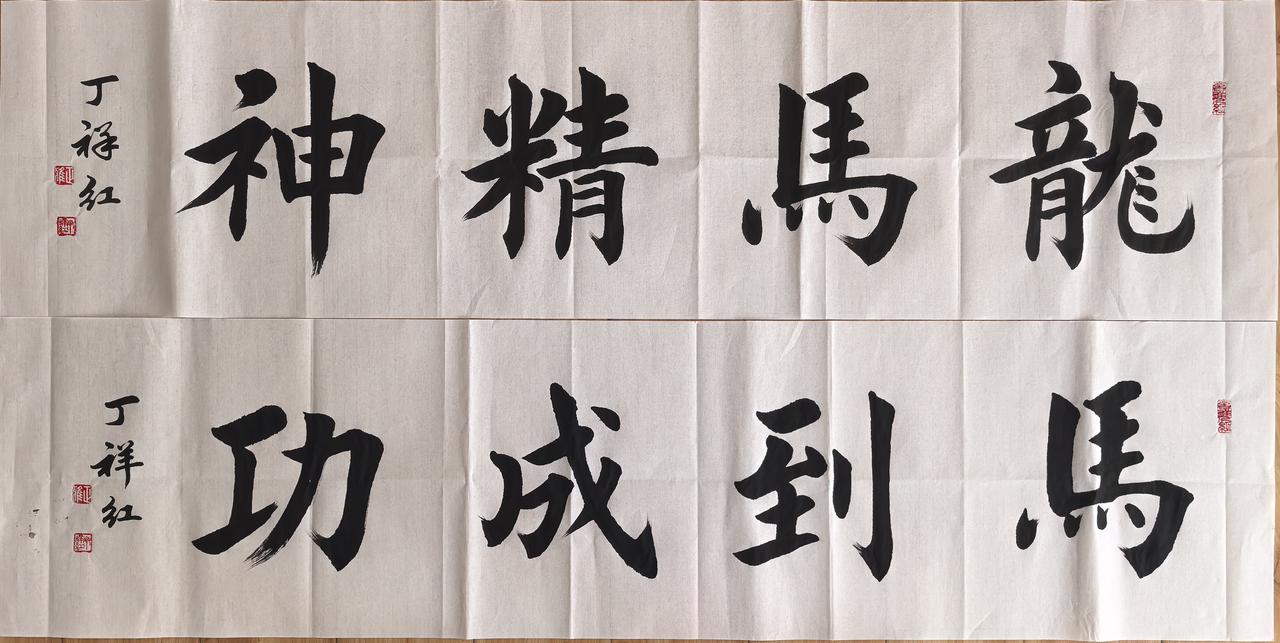 龍馬精神
丁祥红
馬到成功
丁祥红